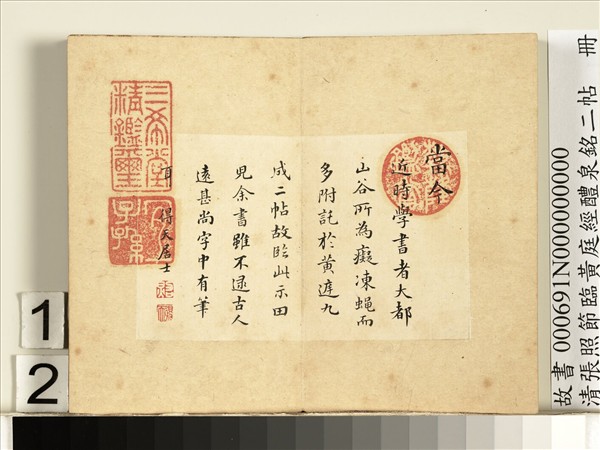 當今
近時學書者大都
山谷所為癡凍蠅而
多附託於黃庭九
成二帖故臨此示田
兒余書雖不逮古人
遠甚尚字中有筆
耳 得天居士
三希堂
精鑑璽
宜子孫
故書 000691N000000000
清張照節臨黃庭經醴泉銘二帖 冊
1
2